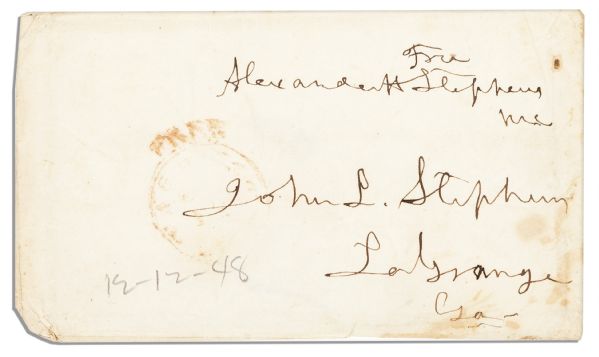 Free
Alexander H Stephens
M.C.
FREE
John L. Stephens
LaGrange
Ga-
12-12-48